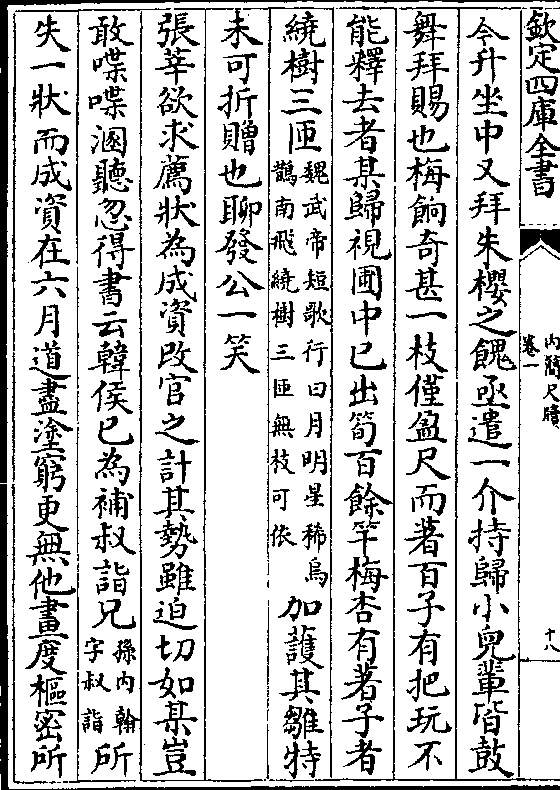 欽定四庫全書
內簡尺牘
卷一
十八
今升坐中又拜朱櫻之餽亟遣一介持歸小兒輩皆鼓
舞拜賜也梅餉奇甚一枝僅盈尺而著百子有把玩不
能釋去者某歸視圃中已出筍百餘竿梅杏有著子者
繞樹三匝魏武帝短歌行曰月明星稀烏鵲南飛繞樹三匝無枝可依加護其雛特
未可折贈也聊發公一笑
張莘欲求薦狀為成資改官之計其勢雖迫切如某豈
敢喋喋溷聽忽得書云韓侯已為補叔詣兄孫內翰字叔詣所
失一狀而成資在六月道盡塗窮更無他畫度樞密所